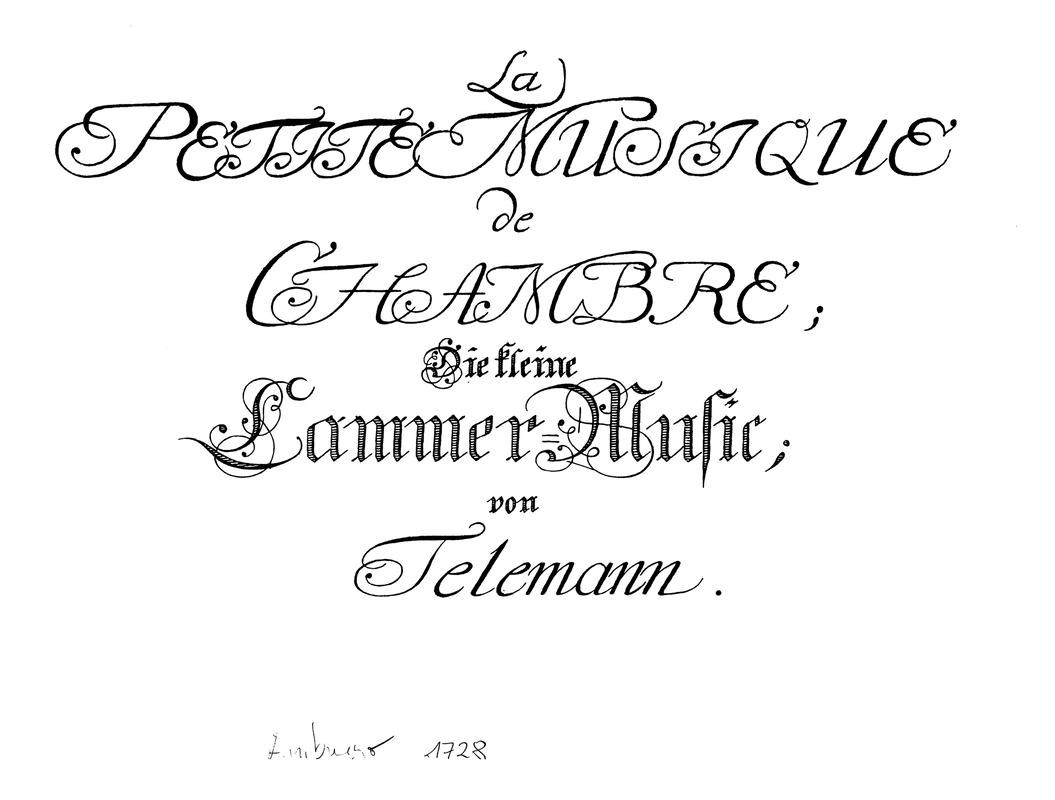 La
PETITE MUSIQUE
de
CHAMBRE;
Die kleine
Cammer=Music;
von
Telemann.
1728